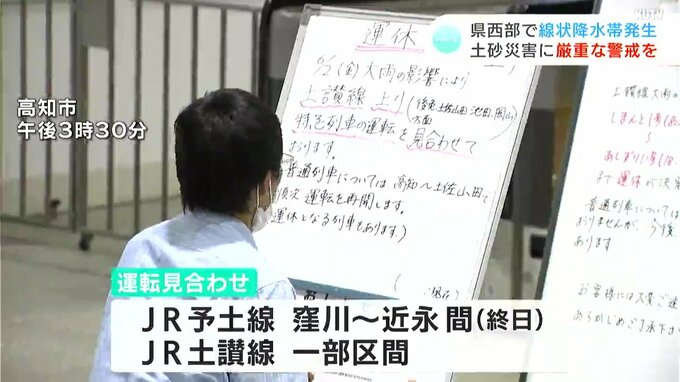 県西部で線状降水帯発生
土砂災害に厳重な警戒を
KUTV
高知市
午後3時30分
運休
6/2(金)大雨の影響により
土讃線 上り(後免 土佐山田 池田 岡山方面)
特急列車の運転を見合わせて
おります。
普通列車については 高知〜土佐山田で
順次 運転を再開します。
運休となる列車もあります)
土讃線 大雨の
しまんと1号
あしずり1号
まで 運休が決
普通列車については
おりませんが、今後
あります
お客様には大変ご迷
あらかじめご了承下
運転見合わせ
JR予土線 窪川〜近永間(終日)
JR土讃線 一部区間